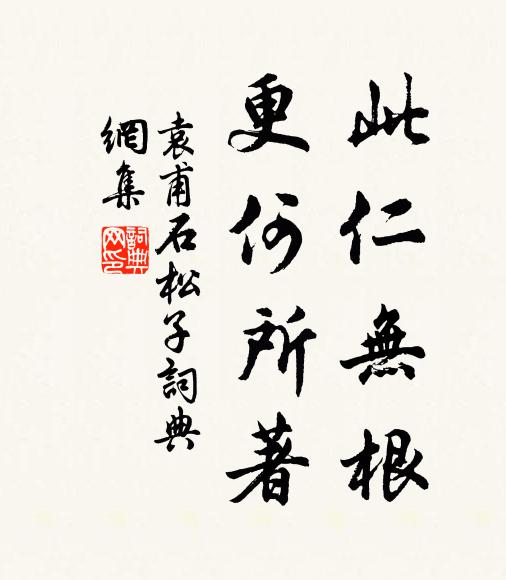 此仁無根
更何所著
袁甫石松子詞典
網集
詞典网印